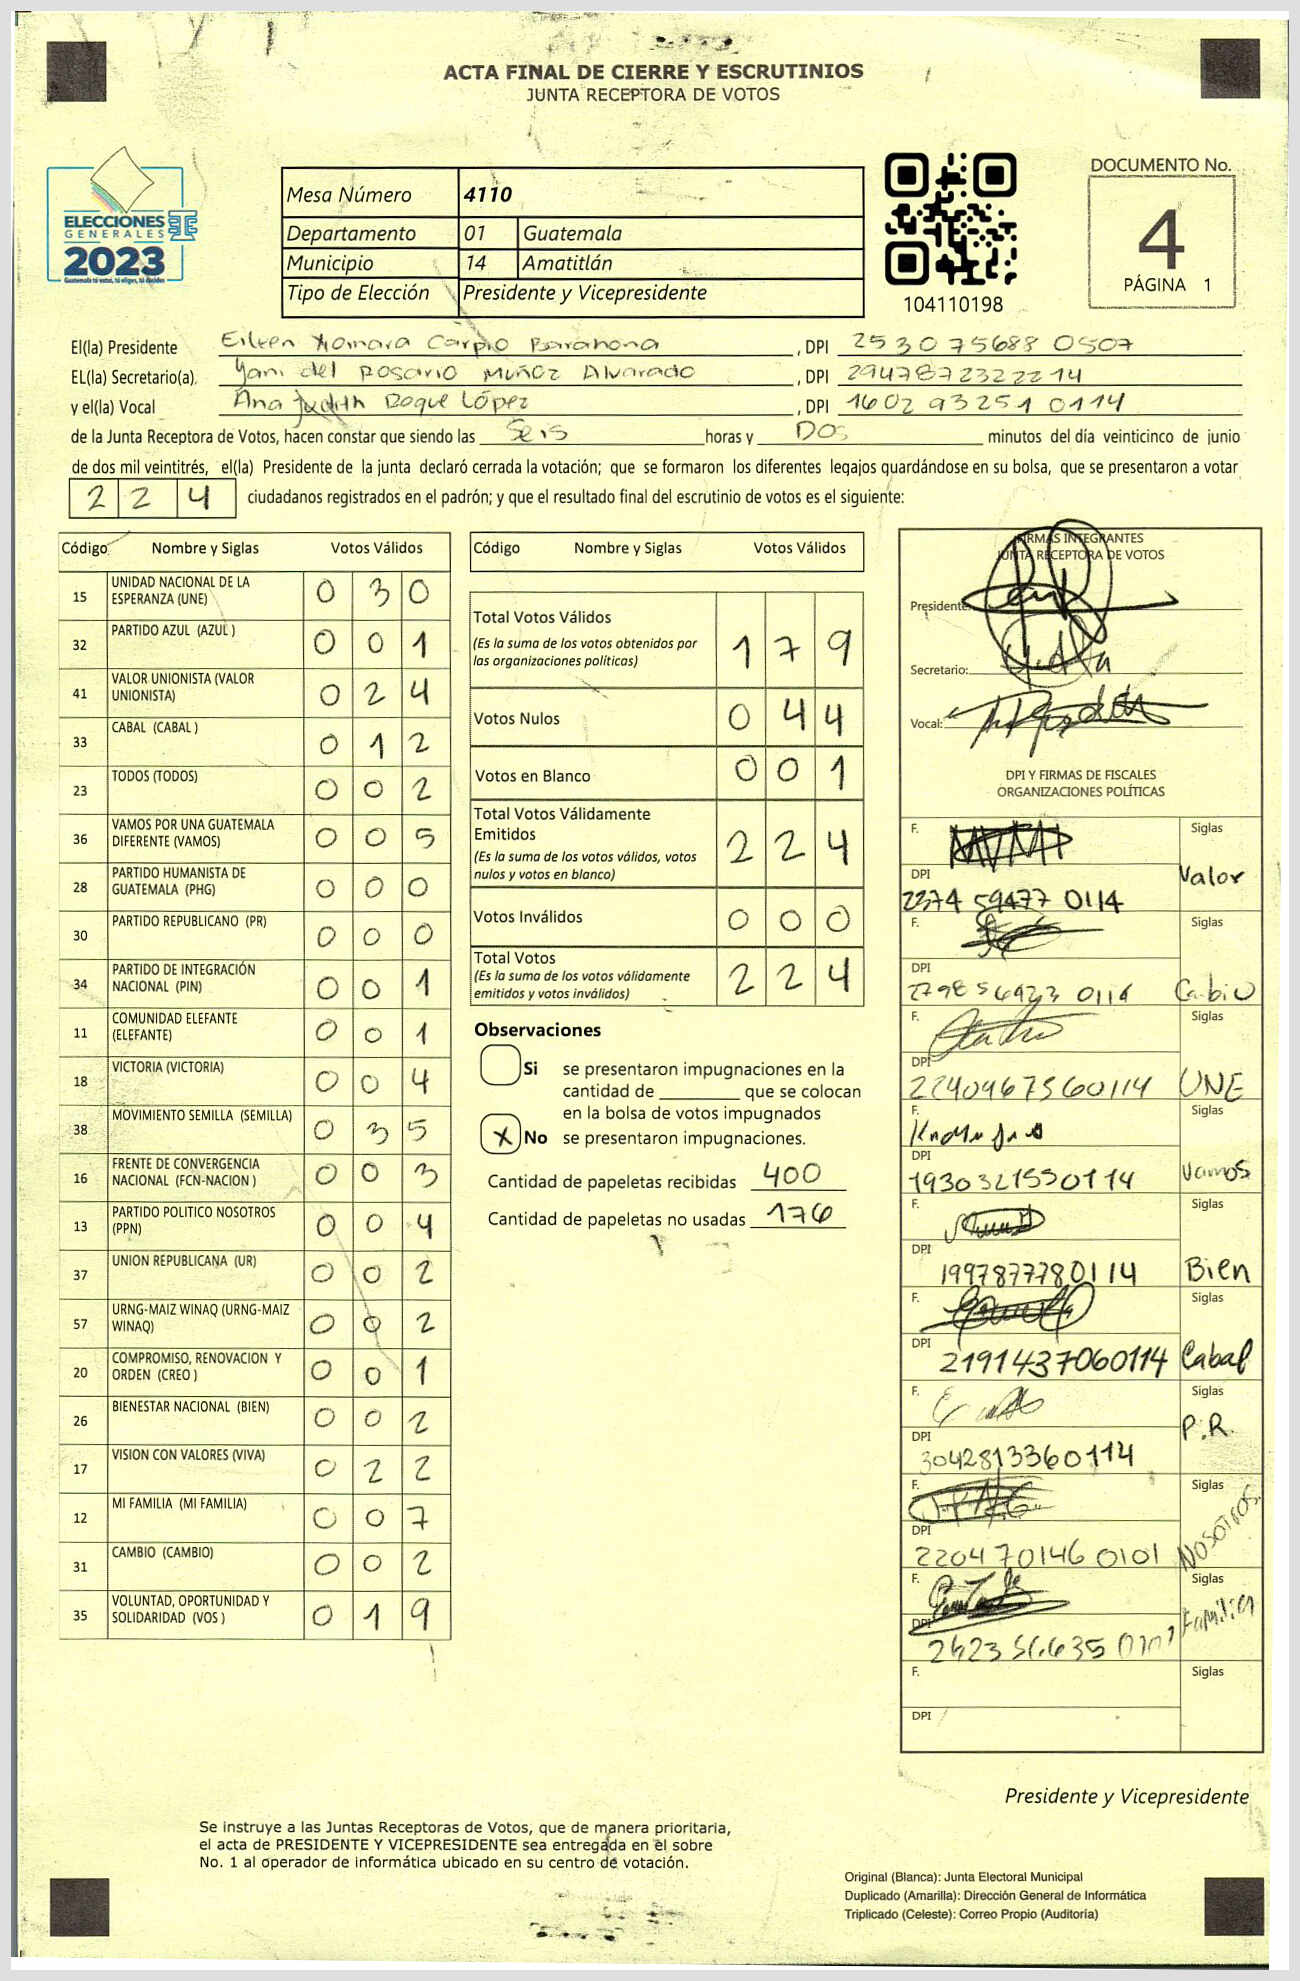 ACTA FINAL DE CIERRE Y ESCRUTINIOS
JUNTA RECEPTORA DE VOTOS
ELECCIONES
GENERALES
2023
Guatemala tú votas, tú eliges, tú decides
Mesa Número 4110
Departamento 01 Guatemala
Municipio 14 Amatitlán
Tipo de Elección Presidente y Vicepresidente
104110198
DOCUMENTO No.
4
PÁGINA 1
El(la) Presidente Eileen Xiomara Carpio Barahona , DPI 2530756880507
EL(la) Secretario(a). Yani del Rosario Muñoz Alvarado , DPI 2947872322214
y el(la) Vocal Ana Judith Roque López , DPI 1602932510114
de la Junta Receptora de Votos, hacen constar que siendo las Seis horas y Dos minutos del día veinticinco de junio
de dos mil veintitrés, el(la) Presidente de la junta declaró cerrada la votación; que se formaron los diferentes legajos guardándose en su bolsa, que se presentaron a votar
224 ciudadanos registrados en el padrón; y que el resultado final del escrutinio de votos es el siguiente:
Código Nombre y Siglas Votos Válidos
15 UNIDAD NACIONAL DE LA ESPERANZA (UNE) 030
32 PARTIDO AZUL (AZUL ) 001
41 VALOR UNIONISTA (VALOR UNIONISTA) 024
33 CABAL (CABAL ) 012
23 TODOS (TODOS) 002
36 VAMOS POR UNA GUATEMALA DIFERENTE (VAMOS) 005
28 PARTIDO HUMANISTA DE GUATEMALA (PHG) 000
30 PARTIDO REPUBLICANO (PR) 000
34 PARTIDO DE INTEGRACIÓN NACIONAL (PIN) 001
11 COMUNIDAD ELEFANTE (ELEFANTE) 001
18 VICTORIA (VICTORIA) 004
38 MOVIMIENTO SEMILLA (SEMILLA) 035
16 FRENTE DE CONVERGENCIA NACIONAL (FCN-NACION ) 003
13 PARTIDO POLITICO NOSOTROS (PPN) 004
37 UNION REPUBLICANA (UR) 002
57 URNG-MAIZ WINAQ (URNG-MAIZ WINAQ) 002
20 COMPROMISO, RENOVACION Y ORDEN (CREO ) 001
26 BIENESTAR NACIONAL (BIEN) 002
17 VISION CON VALORES (VIVA) 022
12 MI FAMILIA (MI FAMILIA) 007
31 CAMBIO (CAMBIO) 002
35 VOLUNTAD, OPORTUNIDAD Y SOLIDARIDAD (VOS ) 019
Código Nombre y Siglas Votos Válidos
Total Votos Válidos 179
(Es la suma de los votos obtenidos por
las organizaciones políticas)
Votos Nulos 044
Votos en Blanco 001
Total Votos Válidamente
Emitidos 224
(Es la suma de los votos válidos, votos
nulos y votos en blanco)
Votos Inválidos 000
Total Votos 224
(Es la suma de los votos válidamente
emitidos y votos inválidos)
Observaciones
Si se presentaron impugnaciones en la
cantidad de ________ que se colocan
en la bolsa de votos impugnados
X No se presentaron impugnaciones.
Cantidad de papeletas recibidas 400
Cantidad de papeletas no usadas 176
FIRMAS INTEGRANTES
JUNTA RECEPTORA DE VOTOS
Presidente:
Secretario:
Vocal:
DPI Y FIRMAS DE FISCALES
ORGANIZACIONES POLÍTICAS
F. Siglas
DPI Valor
2374 59477 0114
F. Siglas
DPI Cambio
0114
F. Siglas
DPI UNE
2240967560114
F. Siglas
DPI Vamos
1930321550114
F. Siglas
DPI Bien
1997877780114
F. Siglas
DPI Cabal
2191437060114
F. Siglas
DPI P.R.
3042813360114
F. Siglas
DPI NOSOTROS
2204701460101
F. Siglas
DPI Familia
F. Siglas
DPI
Presidente y Vicepresidente
Se instruye a las Juntas Receptoras de Votos, que de manera prioritaria,
el acta de PRESIDENTE Y VICEPRESIDENTE sea entregada en el sobre
No. 1 al operador de informática ubicado en su centro de votación.
Original (Blanca): Junta Electoral Municipal
Duplicado (Amarilla): Dirección General de Informática
Triplicado (Celeste): Correo Propio (Auditoría)